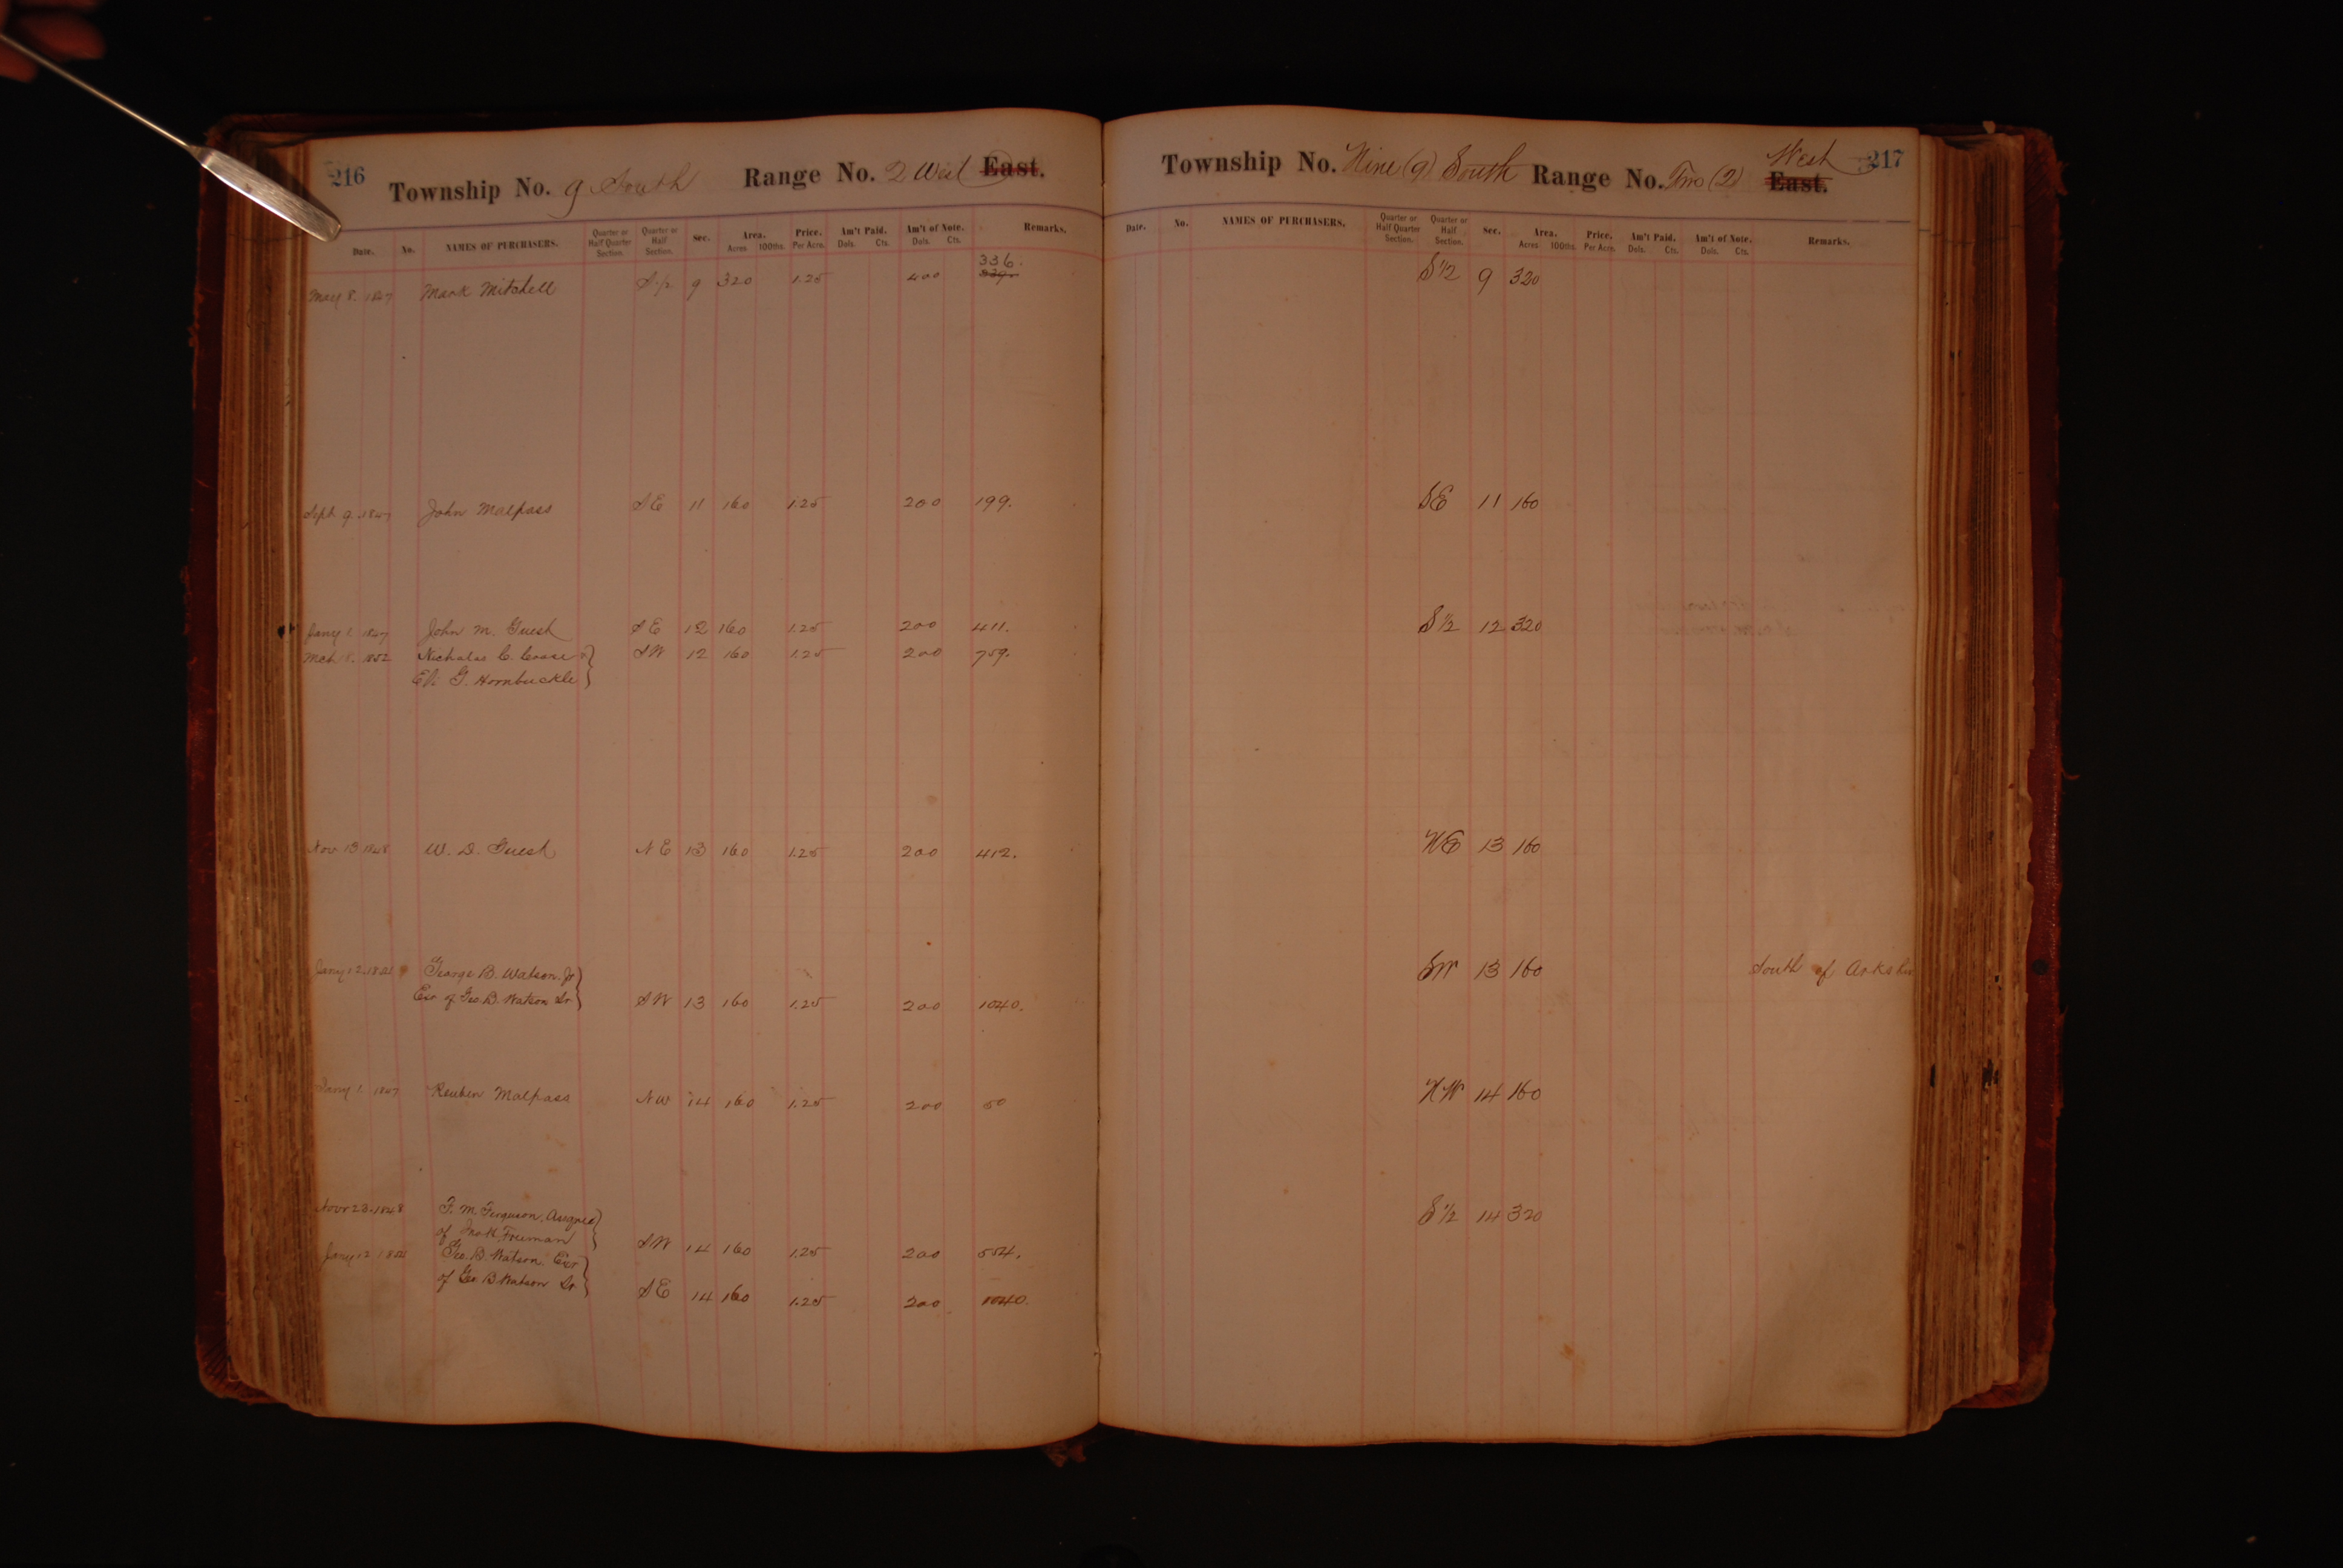 216
Township No. 9 South Range No. 2 West East.
Date. No. NAMES OF PURCHASERS. Quarter or Half Quarter Section. Quarter or Half Section. Sec. Area. Acres 100ths. Price. Per Acre. Am't Paid. Dols. Cts. Am't of Note. Dols. Cts. Remarks.
336.
May 8. 1847 Mark Mitchell S ½ 9 320 1.25 400
Sept 9. 1847 John Malpass SE 11 160 1.25 200 199.
Jany 1. 1847 John M. Guest SE 12 160 1.25 200 411.
Mch 8. 1852 Nicholas C. SW 12 160 1.25 200 759.
Eli G. Hornbuckle
Nov 13 1848 W. D. Guest NE 13 160 1.25 200 412.
Jany 12. George B. Watson. Jr
Exr of Geo. B. Watson Sr SW 13 160 1.25 200 1040.
Jany 1. 1847 Reuben Malpass NW 14 160 1.25 200 50
Novr 23. 1848 F. M. Ferguson, Assignee
of Freeman SW 14 160 1.25 200 554.
Jany 12 Geo. B. Watson. Exr
of Geo B. Watson Sr SE 14 160 1.25 200 1040.
217
Township No. Nine (9) South Range No. Two (2) West East.
Date. No. NAMES OF PURCHASERS. Quarter or Half Quarter Section. Quarter or Half Section. Sec. Area. Acres 100ths. Price. Per Acre. Am't Paid. Dols. Cts. Am't of Note. Dols. Cts. Remarks.
S ½ 9 320
SE 11 160
S ½ 12 320
NE 13 160
SW 13 160 South of Arks
NW 14 160
S ½ 14 320